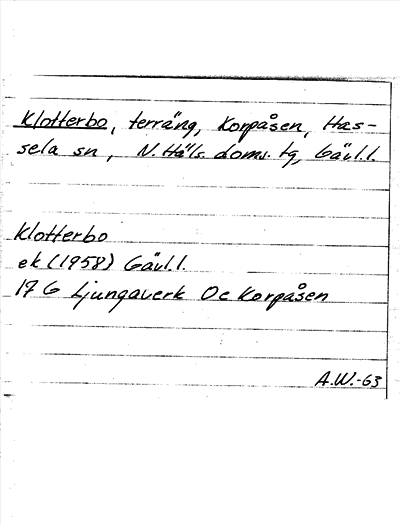 Klotterbo, terräng, Korpåsen, Has-
sela sn, N. Häls. doms. tg, Gävl. l.
Klotterbo
ek (1958) Gävl. l.
17 G Ljungaverk Oc Korpåsen
A.W.-63